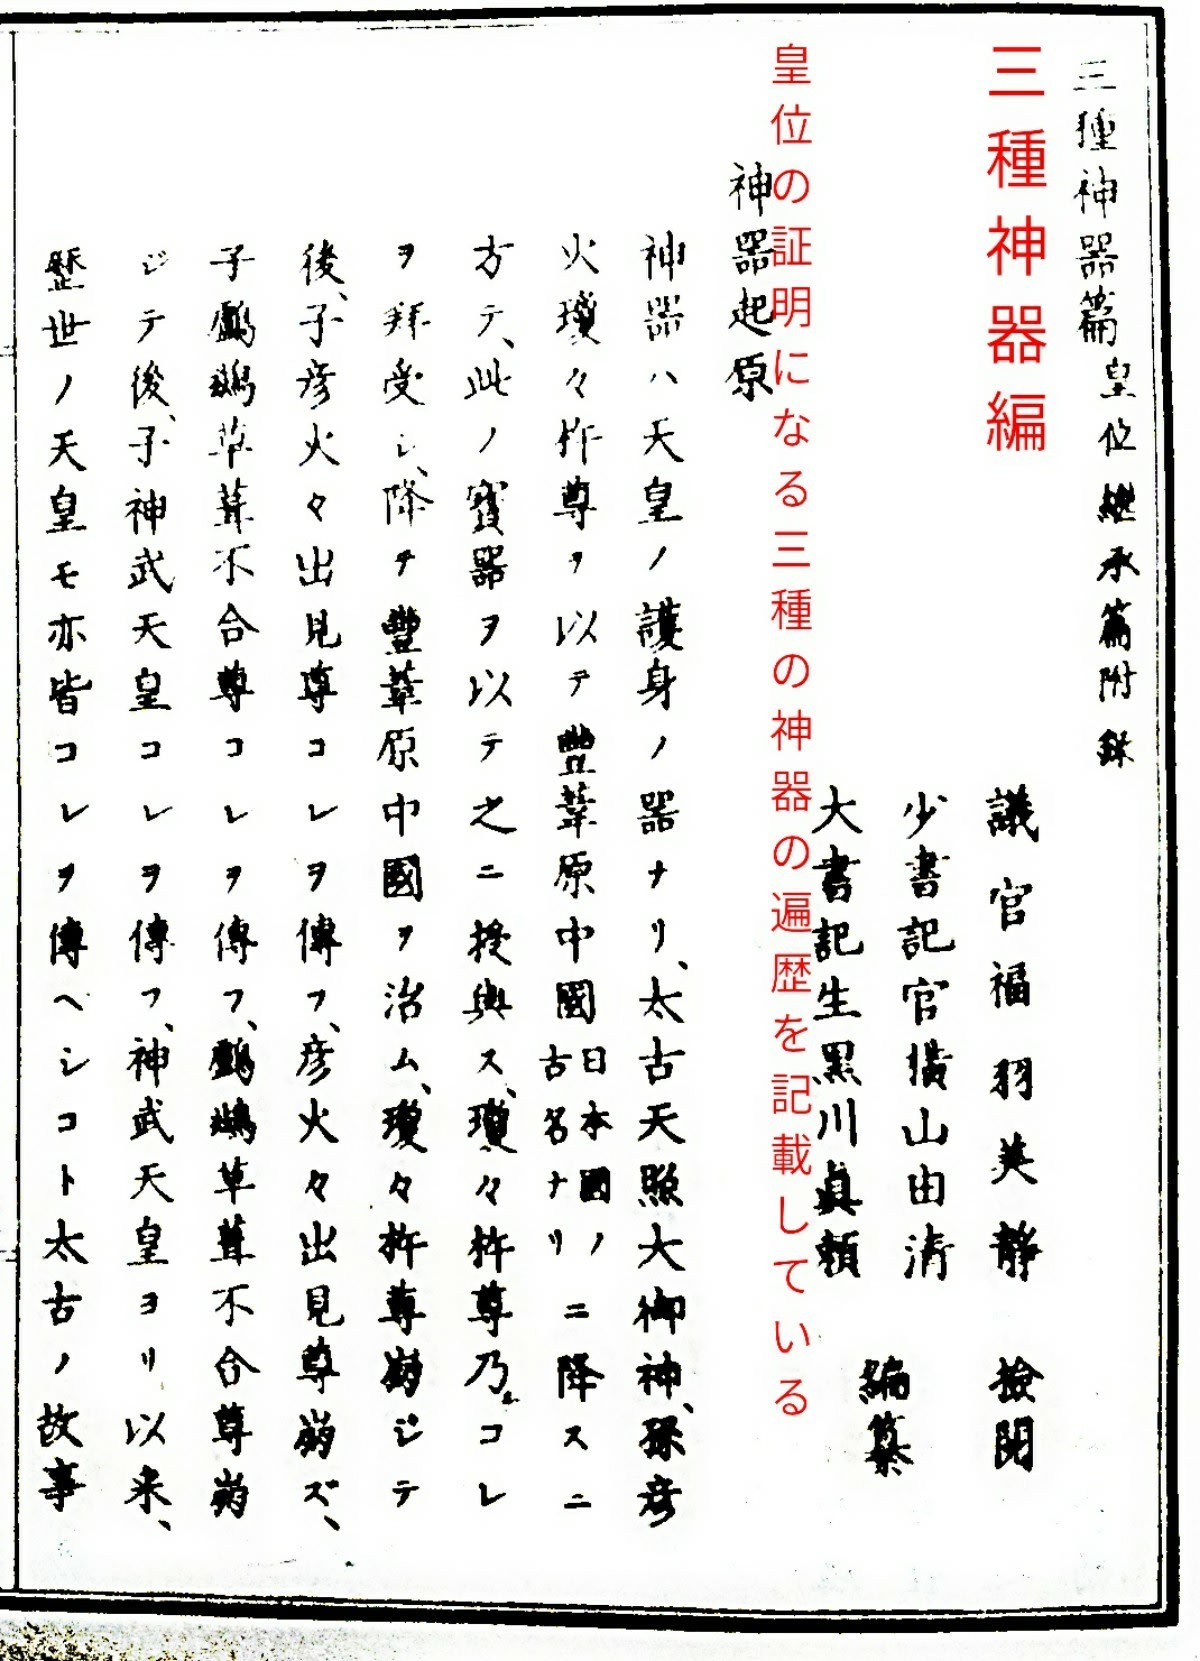 三種神器篇 皇位繼承篇附録
三種神器編
議官福羽美靜 檢閲
少書記官横山由清
大書記生黒川眞頼
編纂
皇位の証明になる三種の神器の遍歴を記載している
神器起原
神器ハ天皇ノ護身ノ器ナリ、太古天照大御神、孫彦
火瓊々杵尊ヲ以テ豐葦原中國日本國ノ古名ナリニ降スニ
方テ、此ノ寶器ヲ以テ之ニ授與ス、瓊々杵尊乃コレ
ヲ拜受シ、降テ豐葦原中國ヲ治ム、瓊々杵尊崩ジテ
後、子彦火々出見尊コレヲ傳フ、彦火々出見尊崩ズ、
子鸕鷀草葺不合尊コレヲ傳フ、鸕鷀草葺不合尊崩
ジテ後、子神武天皇コレヲ傳フ、神武天皇ヨリ以来、
歴世ノ天皇モ亦皆コレヲ傳ヘシコト太古ノ故事